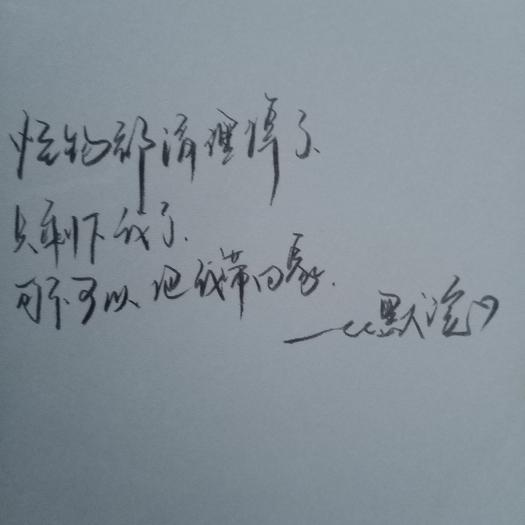 怪物都清理掉了
只剩下我了.
可不可以 把我带回家.
——默